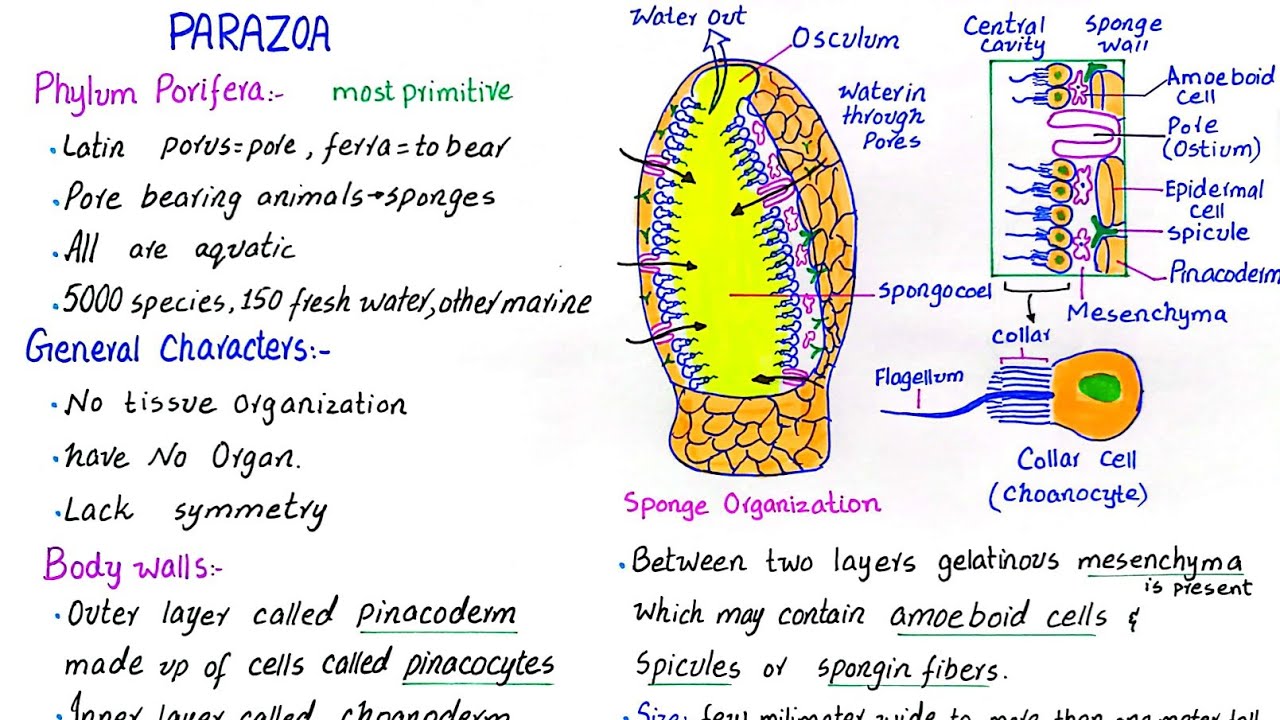 PARAZOA
Phylum Porifera:- most primitive
• Latin porus=pore, ferra=to bear
• Pore bearing animals→sponges
• All are aquatic
• 5000 species, 150 fresh water, other marine
General Characters:-
• No tissue organization
• have No Organ.
• Lack symmetry
Body walls:-
• Outer layer called pinacoderm
made up of cells called pinacocytes
• Inner layer called choanoderm
Water Out
Osculum
Water in
through
Pores
Spongocoel
Sponge Organization
Central
Cavity
Sponge
wall
Amoeboid
cell
Pore
(Ostium)
Epidermal
cell
Spicule
Pinacoderm
Mesenchyma
Collar
Flagellum
Collar Cell
(Choanocyte)
• Between two layers gelatinous mesenchyma
is present
which may contain amoeboid cells &
Spicules or spongin fibers.
• Size: few milimeter wide to more than one meter tall